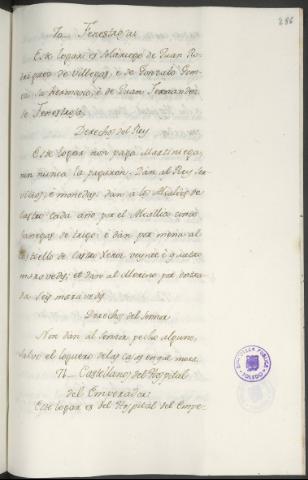 286
Fenestrosa
Este logar es solariego de Juan Ro-
driguez de Villegas, è de Gonzalo Gomez
su Hermano, è de Juan Fernandez
de Fenestrosa
Derechos del Rey
Este logar non paga Martiniega,
nin nunca la pagaron. Dan al Rey ser-
vicios, è monedas. dan a los Alcaldes de
Castro cada año por el
fanegas de trigo; è dan por mena al
Castiello de Castro Xeriz veynte è quatro
maravedis; et dan al Merino por entra-
da seis maravedis.
Derechos del Señor
Non dan al Señor pecho alguno,
salvo el loguero delas casas en que moran.
Castellanos del Hospital
del Emperador
Este logar es del Hospital del Empe-
BIBLIOTECA PUBLICA
TOLEDO